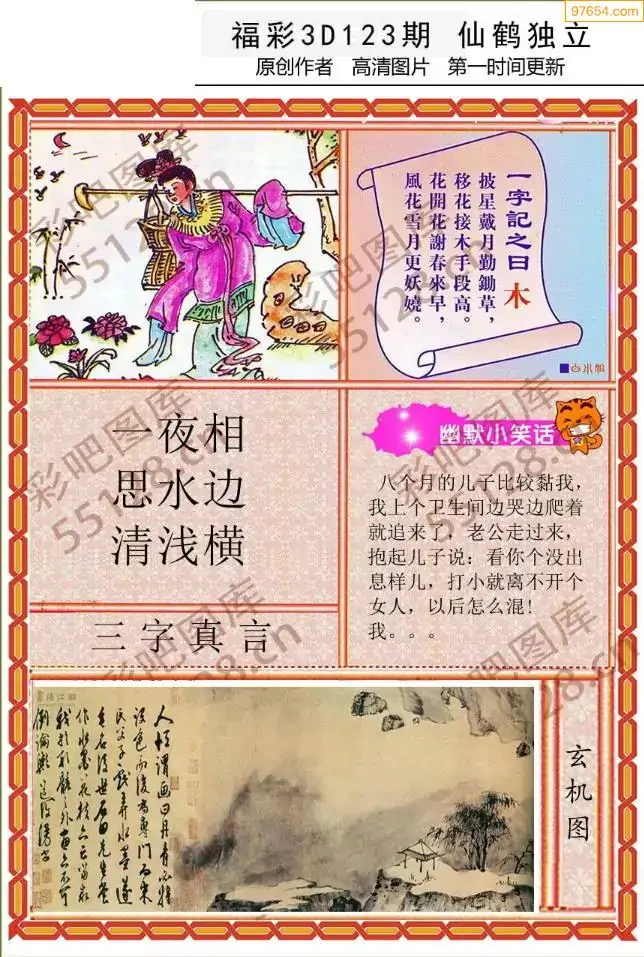 97654.com
福彩3D123期 仙鹤独立
原创作者 高清图片 第一时间更新
一字記之曰 木
披星戴月勤鋤草，
移花接木手段高。
花開花謝春來早，
風花雪月更妖嬈。
■白小姐
一夜相
思水边
清浅横
三字真言
幽默小笑话
八个月的儿子比较黏我，
我上个卫生间边哭边爬着
就追来了，老公走过来，
抱起儿子说：看你个没出
息样儿，打小就离不开个
女人，以后怎么混!
我。。。
玄机图
彩吧图库
55128.cn